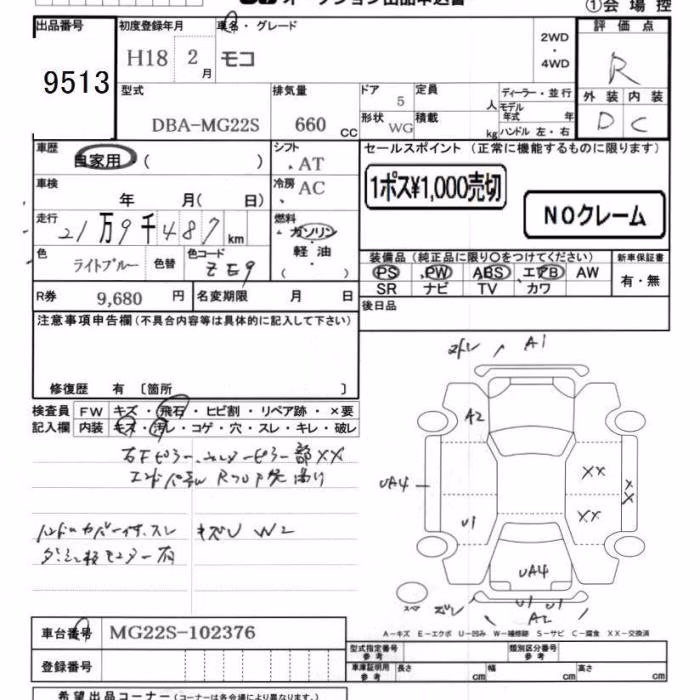 ①会場控
出品番号 初度登録年月 車名・グレード 2WD・4WD 評価点
9513 H18 2月 モコ R
型式 排気量 ドア 定員 人 ディーラー・並行 外装 内装
DBA-MG22S 660 CC 5 モデル年式 年 D C
形状 WG 積載 kg ハンドル 左・右
車歴 自家用 ( ) シフト AT セールスポイント (正常に機能するものに限ります)
車検 年 月( 日) 冷房 AC 1ポス¥1,000売切
走行 21万9千487km 燃料 ガソリン・軽油・( ) NOクレーム
色 ライトブルー 色替 色コード ZE9
装備品 (純正品に限り〇をつけてください) 新車保証書
PS PW ABS エアB AW 有・無
SR ナビ TV カワ
R券 9,680 円 名変期限 月 日 後日品
注意事項申告欄 (不具合内容等は具体的に記入して下さい)
A1
修復歴 有 〔箇所 〕
検査員 FW キズ・飛石・ヒビ割・リペア跡・×要
記入欄 内装 キズ・汚レ・コゲ・穴・スレ・キレ・破レ
A2
XX
UA4
XX
U1
キズU W2
UA4
スペア
U1 U1
A2
A-キズ E-エクボ U-凹み W-補修跡 S-サビ C-腐食 XX-交換済
車台番号 MG22S-102376
型式指定番号 参考 類別区分番号 参考
登録番号 車庫証明用 参考 長さ cm 幅 cm 高さ cm
希望出品コーナー (コーナーは各会場により異なります。)